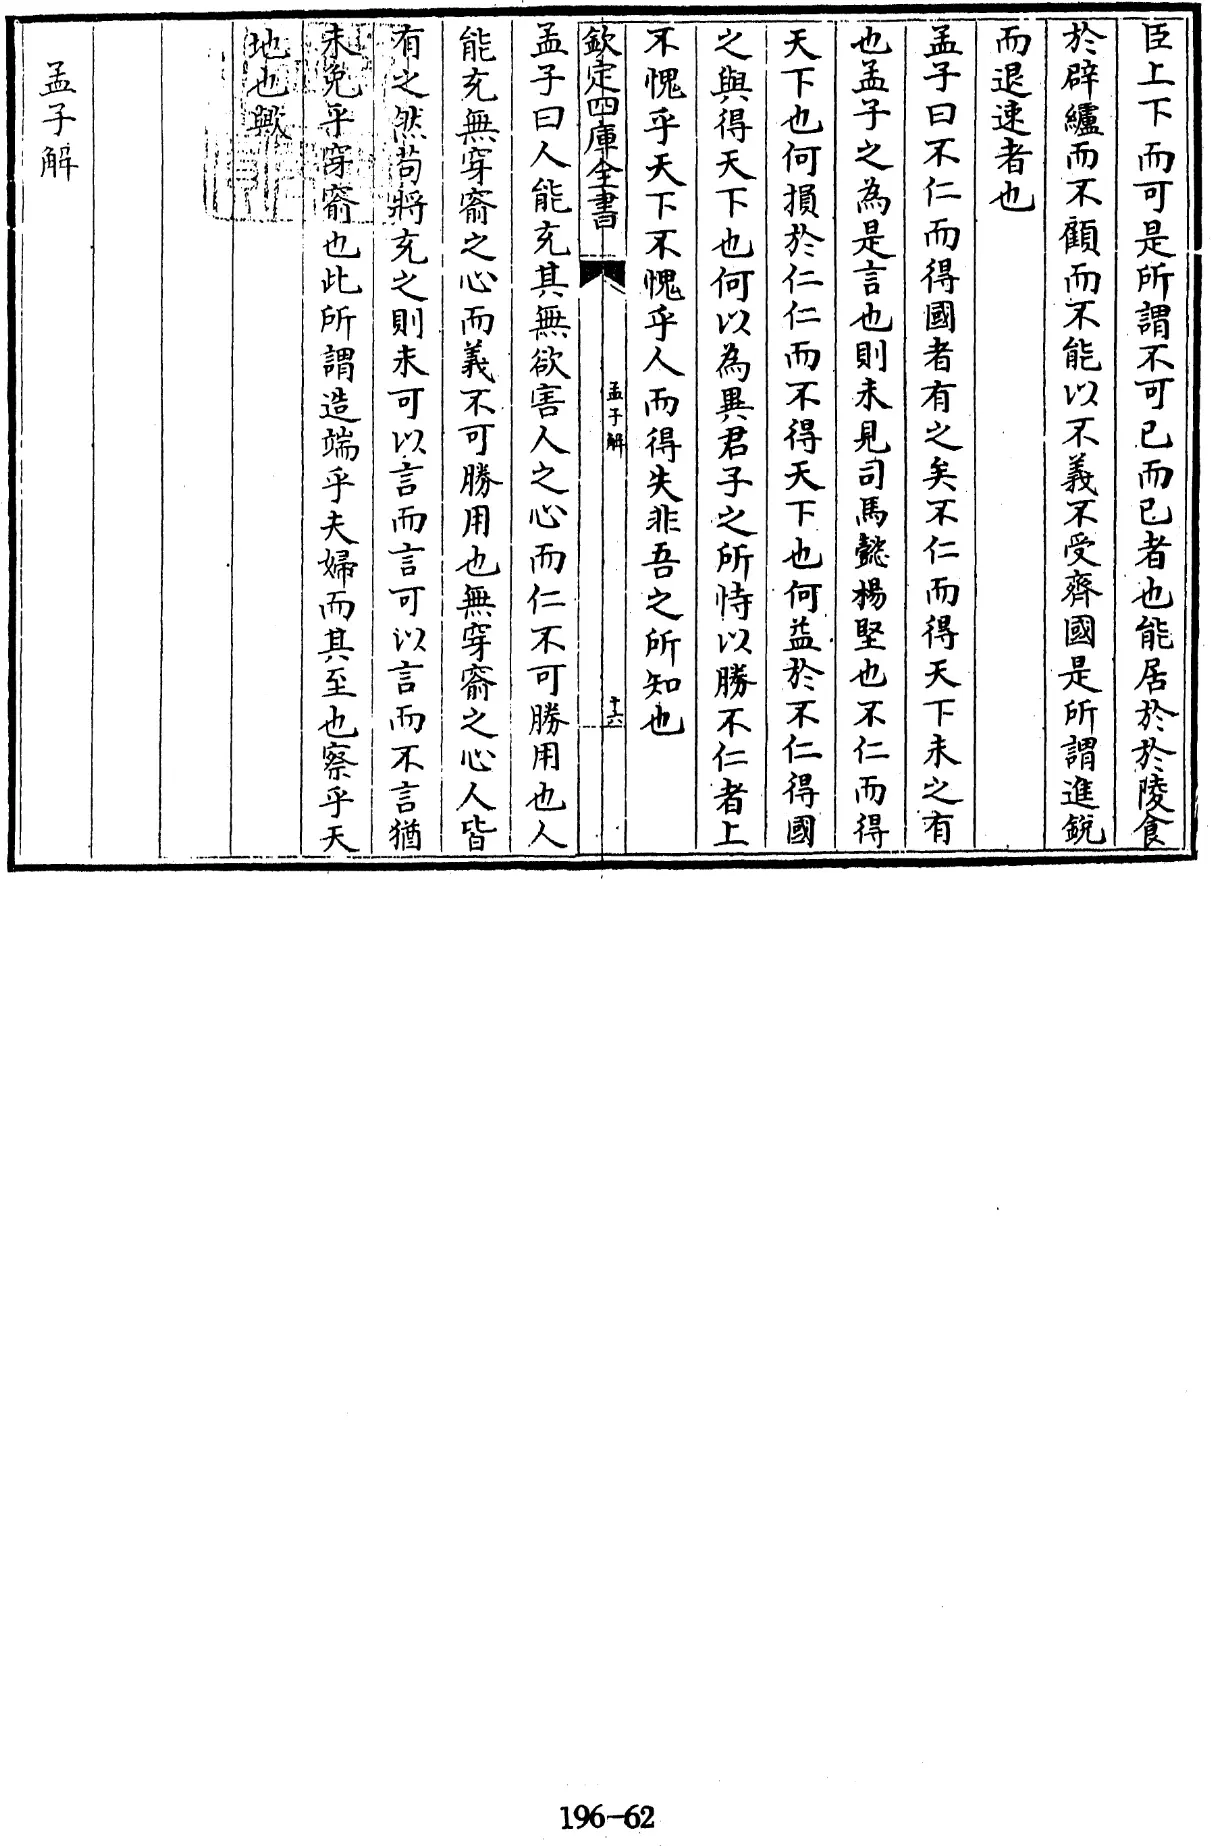 臣上下而可是所謂不可已而已者也能居於於陵食
於辟纑而不顧而不能以不義不受齊國是所謂進銳
而退速者也
孟子曰不仁而得國者有之矣不仁而得天下未之有
也孟子之為是言也則未見司馬懿楊堅也不仁而得
天下也何損於仁仁而不得天下也何益於不仁得國
之與得天下也何以為異君子之所恃以勝不仁者上
不愧乎天下不愧乎人而得失非吾之所知也
欽定四庫全書
孟子解
十六
孟子曰人能充其無欲害人之心而仁不可勝用也人
能充無穿窬之心而義不可勝用也無穿窬之心人皆
有之然苟將充之則未可以言而言可以言而不言猶
未免乎穿窬也此所謂造端乎夫婦而其至也察乎天
地也歟
孟子解
196-62